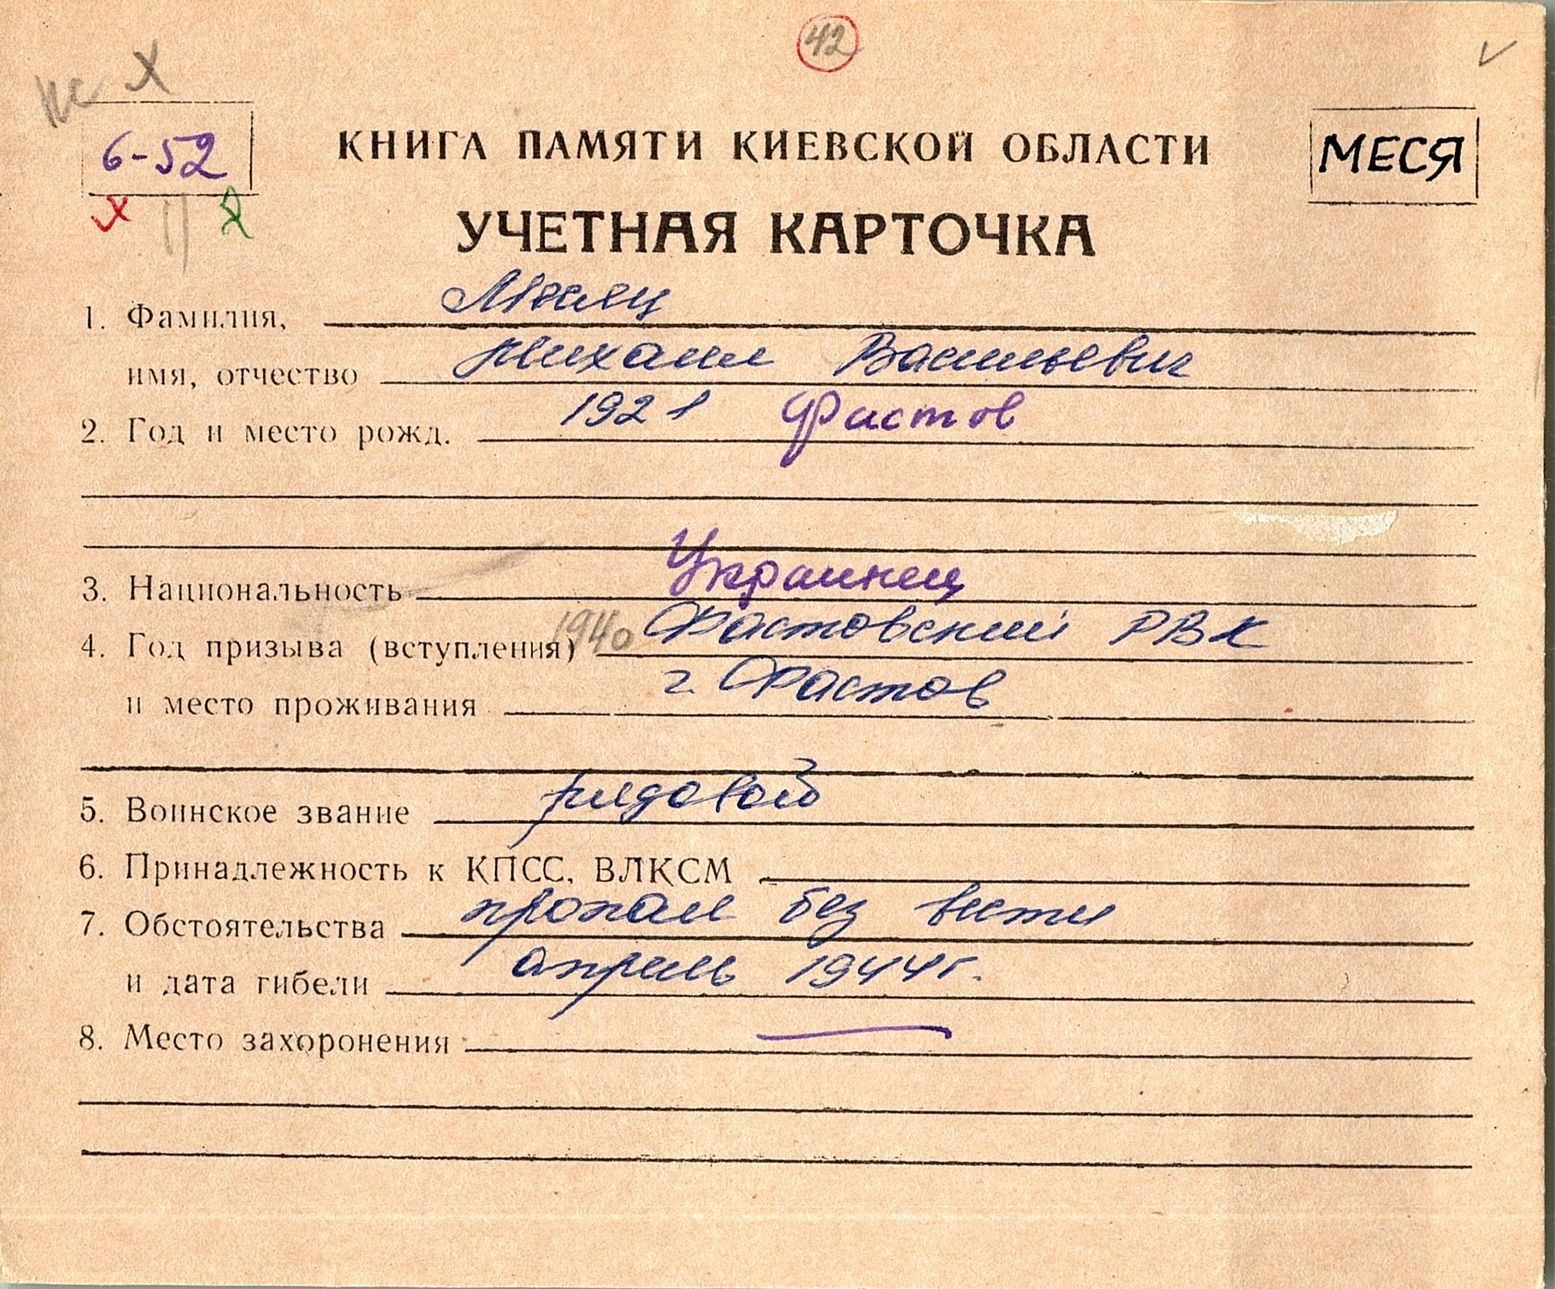 42
6-52
КНИГА ПАМЯТИ КИЕВСКОЙ ОБЛАСТИ
МЕСЯ
УЧЕТНАЯ КАРТОЧКА
1. Фамилия, Месяц
имя, отчество Михаил Васильевич
2. Год и место рожд. 1921 Фастов
3. Национальность Украинец
4. Год призыва (вступления) 1940 Фастовский РВК
и место проживания г. Фастов
5. Воинское звание рядовой
6. Принадлежность к КПСС, ВЛКСМ
7. Обстоятельства пропал без вести
и дата гибели апрель 1944г.
8. Место захоронения —